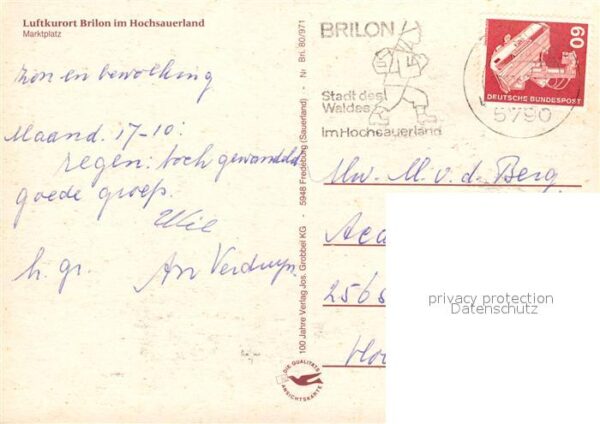 Luftkurort Brilon im Hochsauerland
Marktplatz
zon en bewolking
Maand. 17-10:
regen: toch gewandeld
goede groep.
Wil
h. gr.
100 Jahre Verlag Jos. Grobbel KG · 5948 Fredeburg (Sauerland) · Nr Bri. 80/971
DIE QUALITÄTS
ANSICHTSKARTE
BRILON
Stadt des
Waldes
im Hochsauerland
5790
60
DEUTSCHE BUNDESPOST
Mw. M.v.d. Berg.
Aca
2565
privacy protection
Datenschutz